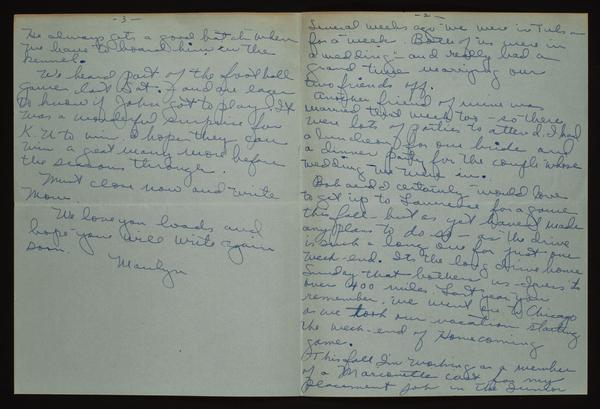 - 2 -
Several weeks ago we were in Tulsa
for a week. Both of us were in
a wedding - and really had a
grand time marrying our
two friends off.
Another friend of mine was
married that week too - so there
were lots of parties to attend. I had
a luncheon for one bride and
a dinner party for the couple whose
wedding we were in.
Bob and I certainly would love
to get up to Lawrence for a game
this fall - but as yet haven't made
any plans to do so - as the drive
is such a long one for just one
week-end. Its the long drive home
Sunday that bothers us - for its
over 400 miles. Last year you
remember, we went on to Chicago
as we took our vacation starting
the week-end of Homecoming
game.
This fall I'm working as a member
of a Marionette cast for my
placement job in the Junior
- 3 -
He always gets a good batch when
we have to board him in the
kennel.
We heard part of the football
game last Sat. - and are eager
to know if John got to play. It
was a wonderful surprise for
K.U. to win. I hope they can
win a great many more before
the seasons through.
Must close now and write
Mom.
We love you loads and
hope you will write again
soon.
Marilyn